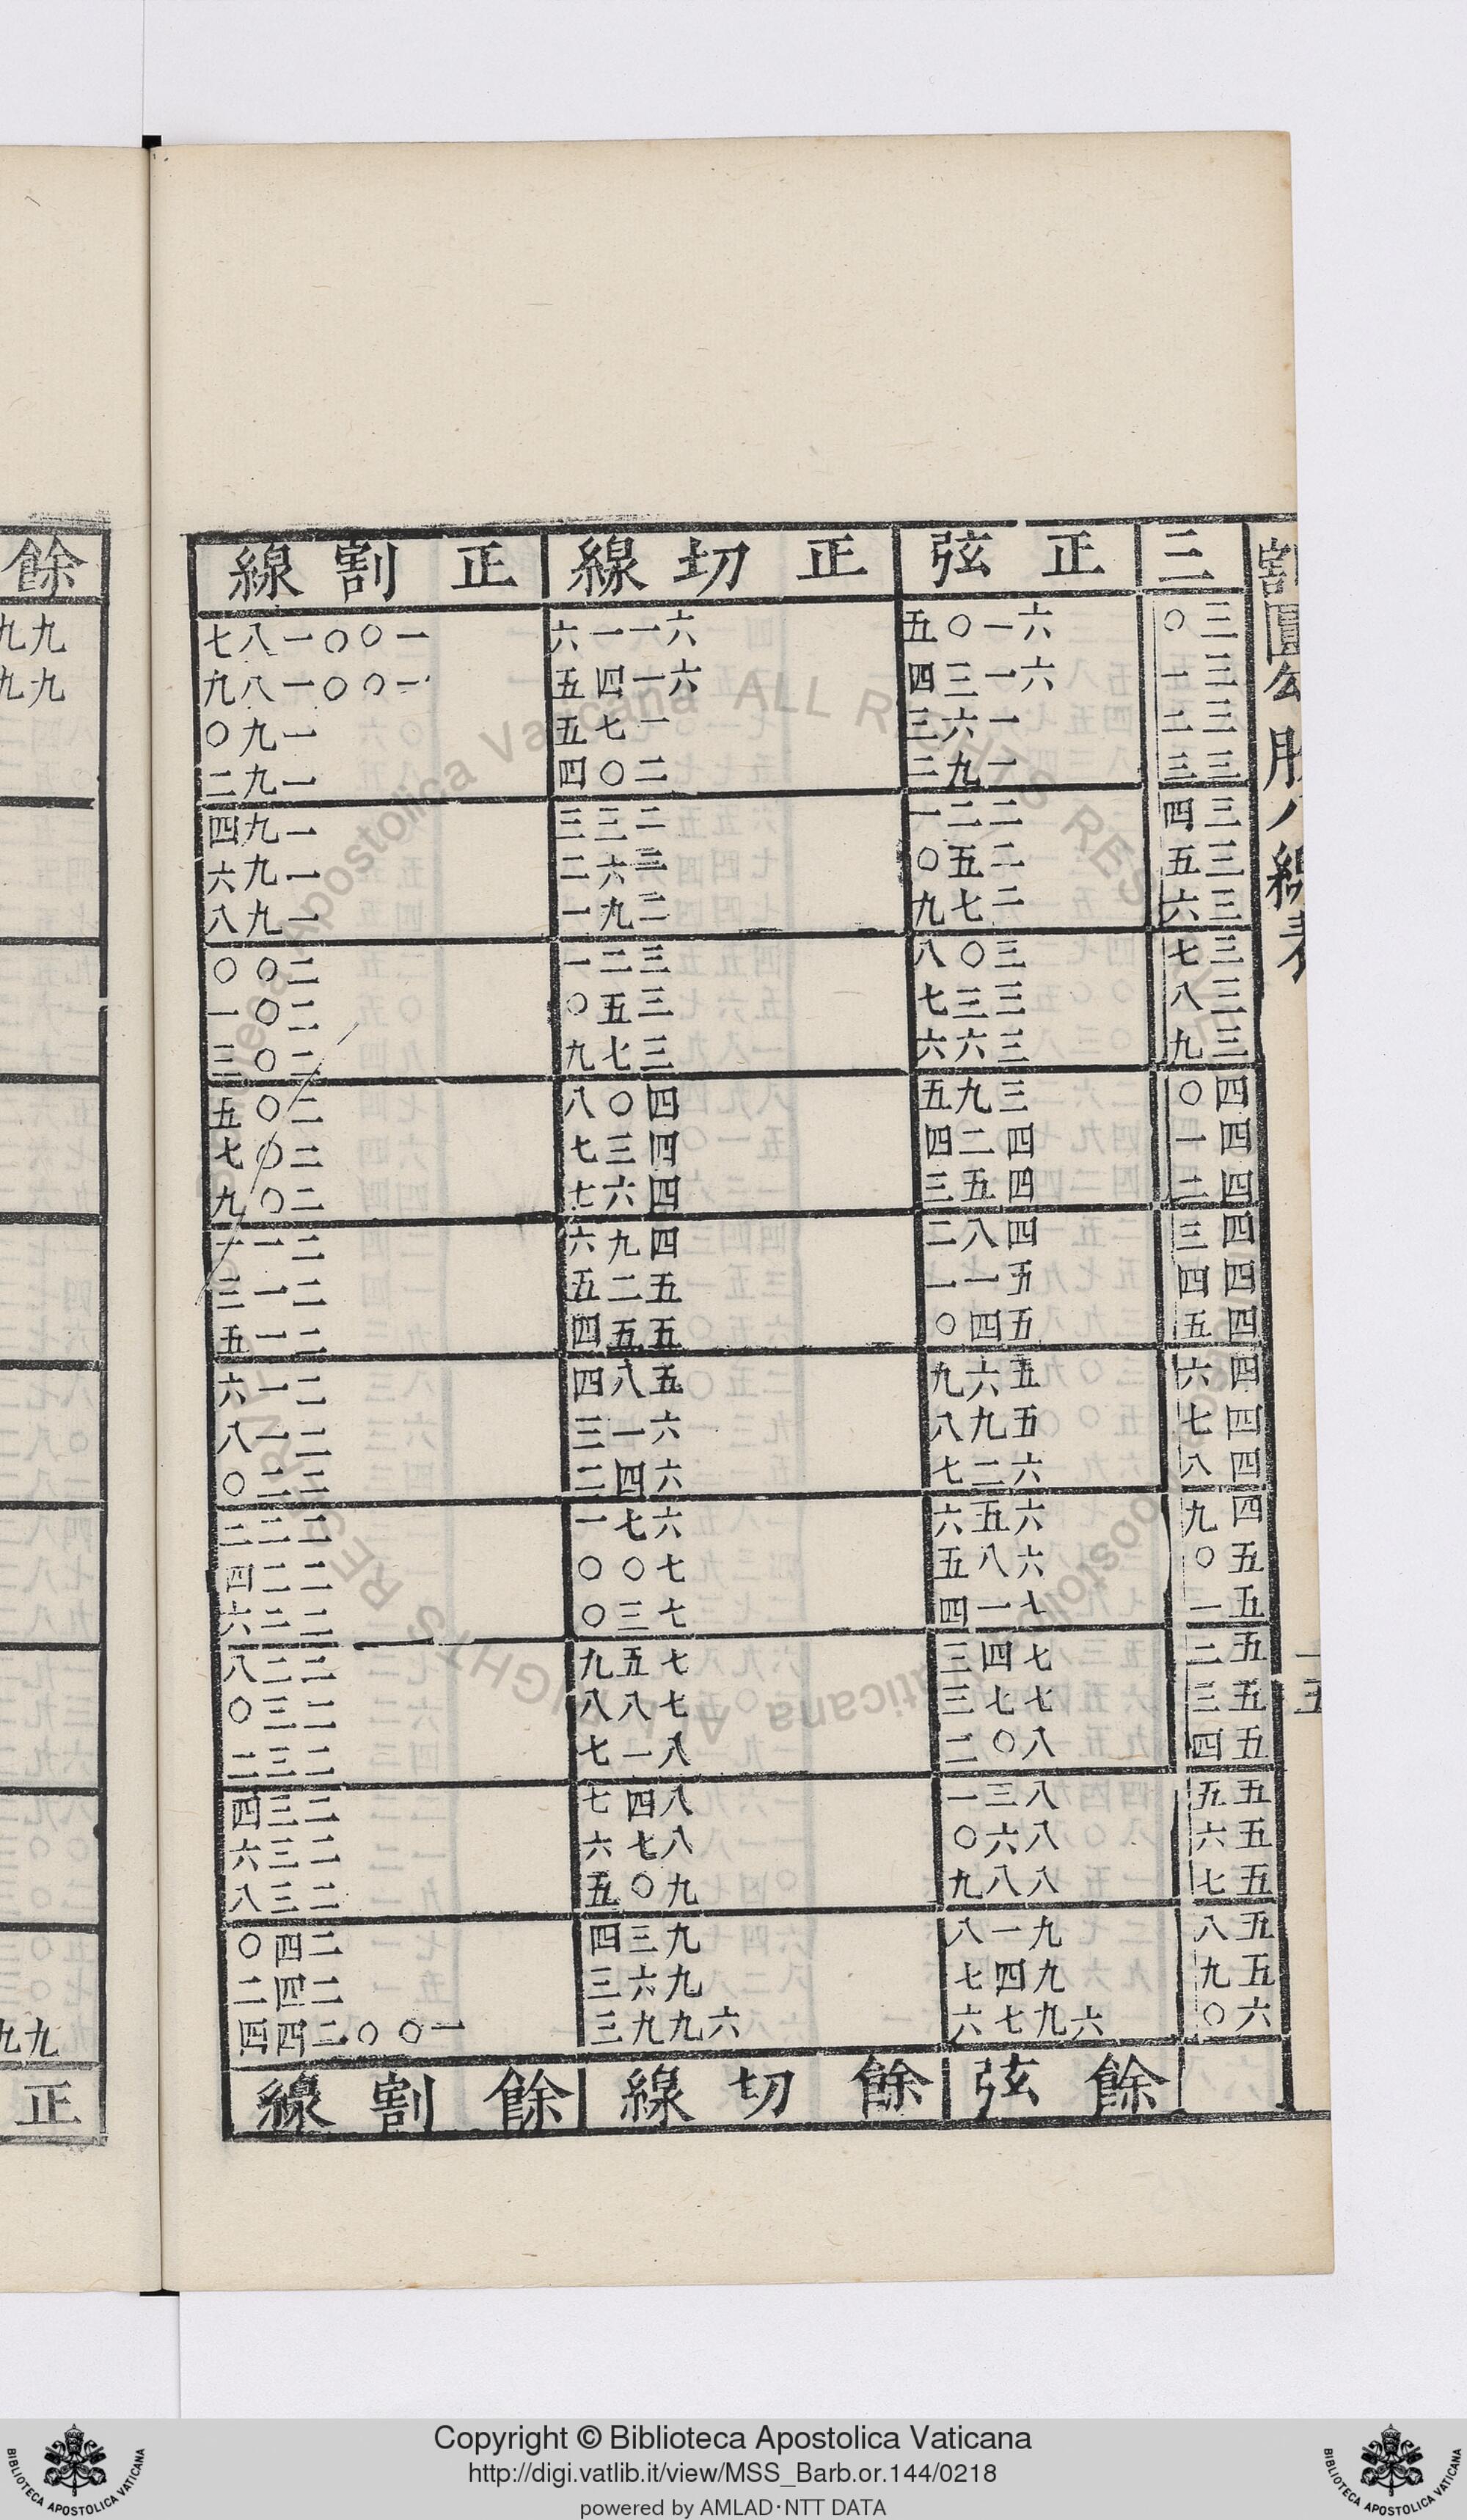 割圓勾股八線表
三 正弦 正切線 正割線
三〇 六一〇五 六一一六 一〇〇一八七
三一 六一三四 六一四五 一〇〇一八九
三二 一六三 一七五 一九〇
三三 一九二 二〇四 一九二
三四 二二一 二三三 一九四
三五 二五〇 二六二 一九六
三六 二七九 二九一 一九八
三七 三〇八 三二一 二〇〇
三八 三三七 三五〇 二〇一
三九 三六六 三七九 二〇三
四〇 三九五 四〇八 二〇五
四一 四二四 四三七 二〇七
四二 四五三 四六七 二〇九
四三 四八二 四九六 二一一
四四 五一一 五二五 二一三
四五 五四〇 五五四 二一五
四六 五六九 五八四 二一六
四七 五九八 六一三 二一八
四八 六二七 六四二 二二〇
四九 六五六 六七一 二二二
五〇 六八五 七〇〇 二二四
五一 七一四 七三〇 二二六
五二 七四三 七五九 二二八
五三 七七三 七八八 二三〇
五四 八〇二 八一七 二三二
五五 八三一 八四七 二三四
五六 八六〇 八七六 二三六
五七 八八九 九〇五 二三八
五八 九一八 九三四 二四〇
五九 九四七 九六三 二四二
六〇 六九七六 六九九三 一〇〇二四四
餘弦 餘切線 餘割線
餘
九九
九九
九九
正
Copyright © Biblioteca Apostolica Vaticana
http://digi.vatlib.it/view/MSS_Barb.or.144/0218
powered by AMLAD·NTT DATA